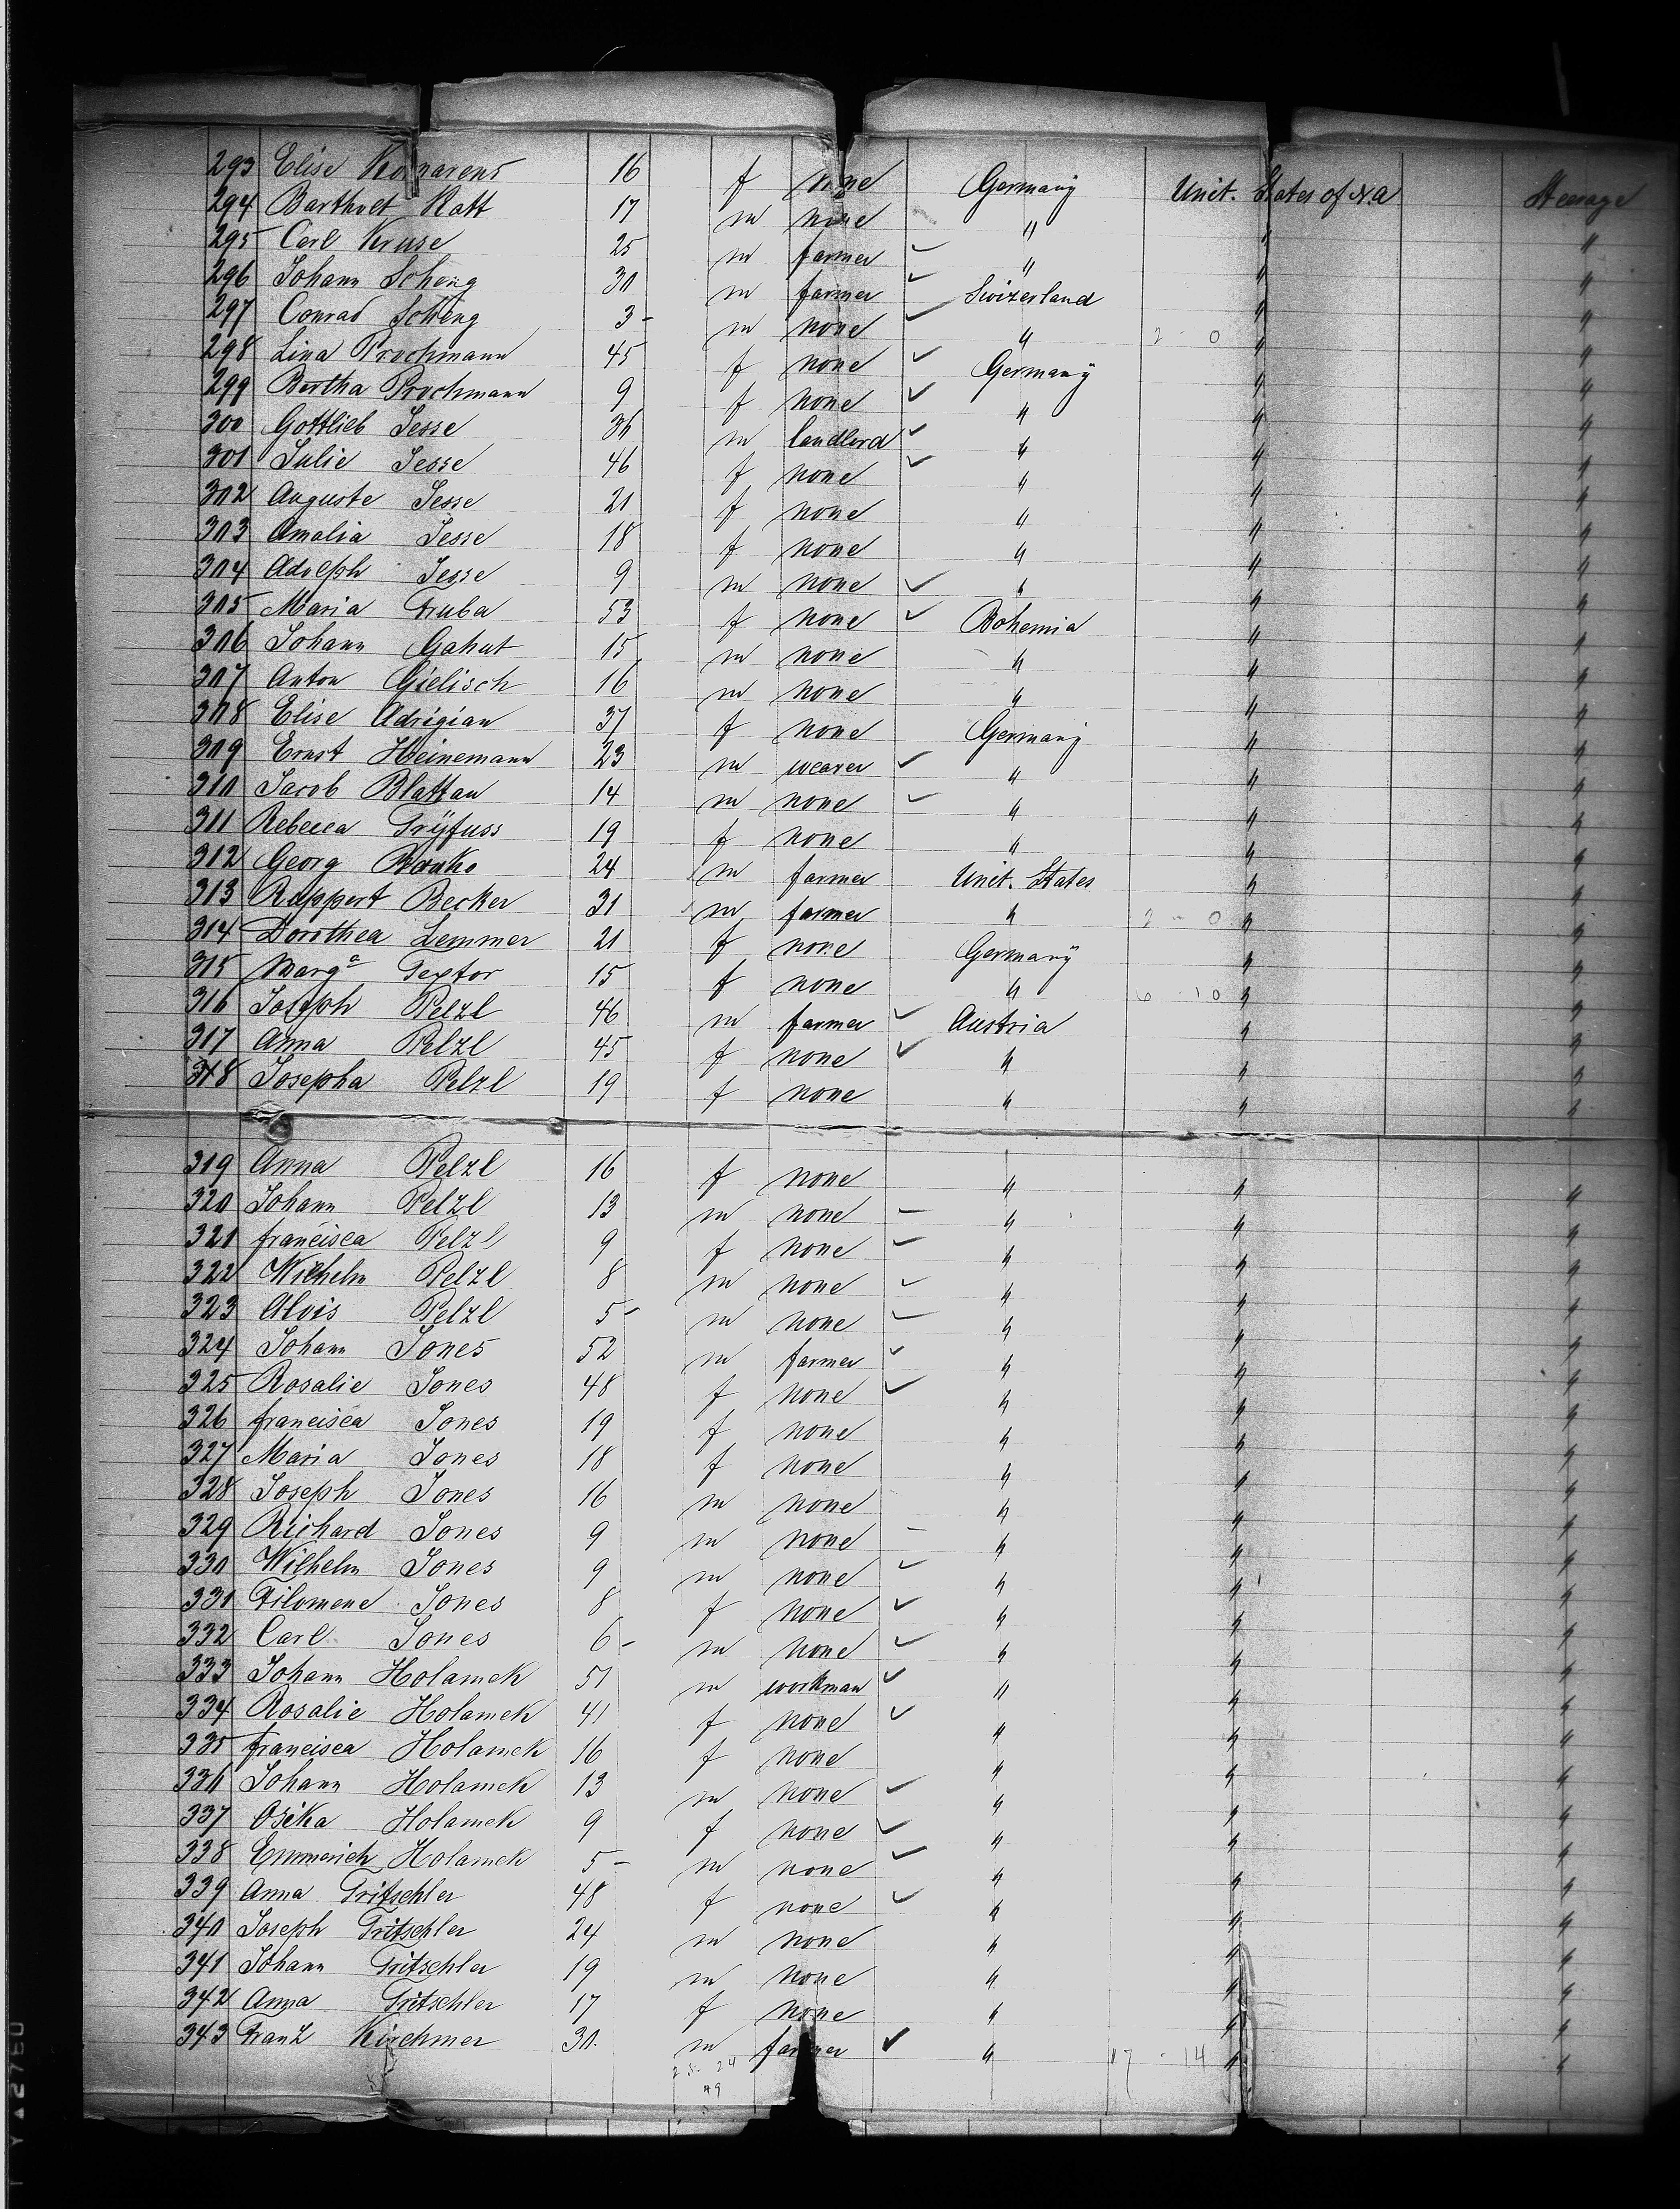 293 Elise 16 f none Germany Unit. States of N.a Steerage
294 Barthoet Katt 17 m none " " "
295 Carl Kruse 25 m farmer " " "
296 Johann Scheng 30 m farmer Swizerland " "
297 Conrad Scheng 3- m none " 2 - 0 " "
298 Lina Prochmann 45 f none Germany " "
299 Bertha Prochmann 9 f none " " "
300 Gottlieb Jesse 36 m landlord " " "
301 Julie Jesse 46 f none " " "
302 Auguste Jesse 21 f none " " "
303 Amalia Jesse 18 f none " " "
304 Adolph Jesse 9 m none " " "
305 Maria Hruba 53 f none Bohemia " "
306 Johann Gahut 15 m none " " "
307 Anton Gielisch 16 m none " " "
308 Elise Adrigian 37 f none Germany " "
309 Ernst Heinemann 23 m weaver " " "
310 Jacob Blattau 14 m none " " "
311 Rebecca Trÿfuss 19 f none " " "
312 Georg 24 m farmer Unit. States " "
313 Ruppert Becker 31 m farmer " 2 - 0 " "
314 Dorothea Lemmer 21 f none Germany " "
315 Marga Textor 15 f none " 6 10 " "
316 Joseph Pelzl 46 m farmer Austria " "
317 Anna Pelzl 45 f none " " "
318 Josepha Pelzl 19 f none " " "
319 Anna Pelzl 16 f none " " "
320 Johann Pelzl 13 m none " " "
321 francisca Pelzl 9 f none " " "
322 Wilhelm Pelzl 8 m none " " "
323 Alois Pelzl 5- m none " " "
324 Johann Jones 52 m farmer " " "
325 Rosalie Jones 48 f none " " "
326 francisca Jones 19 f none " " "
327 Maria Jones 18 f none " " "
328 Joseph Jones 16 m none " " "
329 Richard Jones 9 m none " " "
330 Wilhelm Jones 9 m none " " "
331 Filomene Jones 8 f none " " "
332 Carl Jones 6- m none " " "
333 Johann Holamek 51 m workman " " "
334 Rosalie Holamek 41 f none " " "
335 francisca Holamek 16 f none " " "
336 Johann Holamek 13 m none " " "
337 Osika Holamek 9 f none " " "
338 Emmerich Holamek 5- m none " " "
339 Anna Tritschler 48 f none " " "
340 Joseph Tritschler 24 m none " " "
341 Johann Tritschler 19 m none " " "
342 Anna Tritschler 17 f none " " "
343 Franz Kirchmer 30. m farmer " 17 - 14 " "
24
49